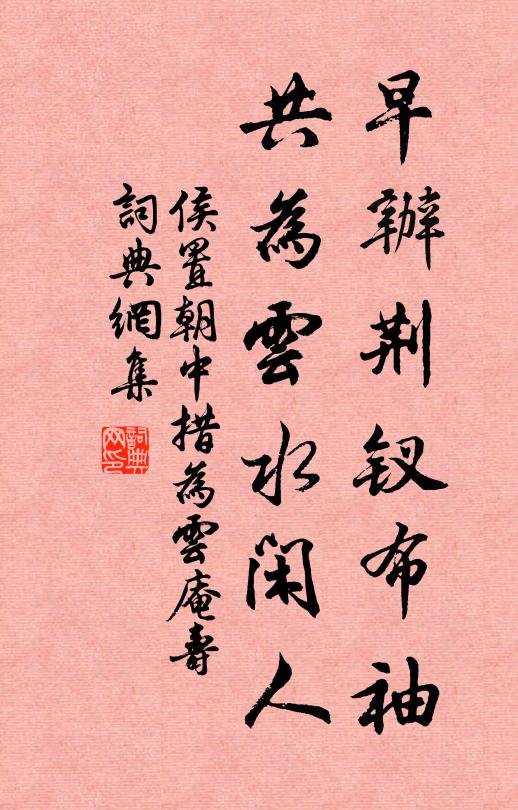 早辦荆釵布袖
共為雲水閑人
侯置朝中措為雲庵壽
詞典網集
詞典網印